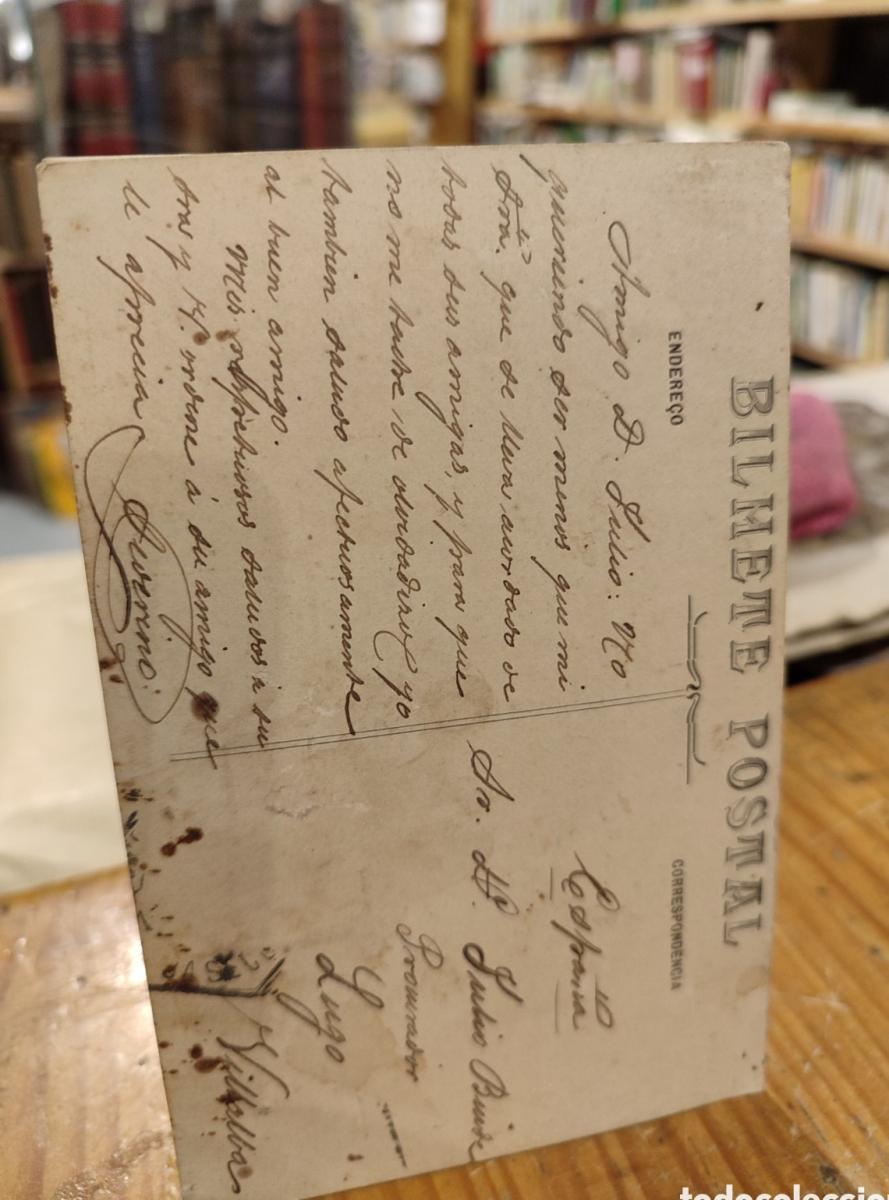 BILHETE POSTAL
ENDEREÇO
CORRESPONDENCIA
Amigo D. Julio: No
queriendo ser menos que mi
Sra. que se lleva cuidado de
todas sus amigas, y para que
no me tache de olvidadizo, yo
tambien saludo afectuosamente
al buen amigo.
Mis respetuosos saludos à su
Sra y V. ordene à su amigo que
le aprecia
Severino.
España
Sr. D. Julio
Procurador
Lugo
Villalba
todocoleccion